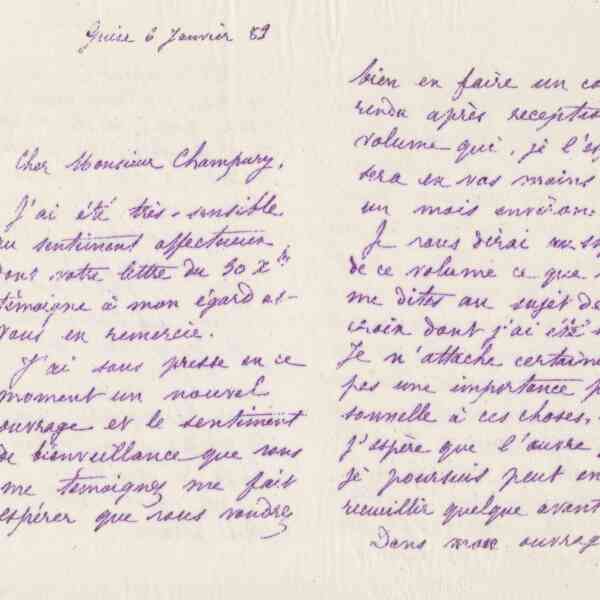 Guise 6 Janvier 89
Cher Monsieur Champury,
J'ai été très-sensible
au sentiment affectueux
dont votre lettre du 30 Xbre
témoigne à mon égard et
vous en remercie.
J'ai sous presse en ce
moment un nouvel
ouvrage et le sentiment
de bienveillance que vous
me témoignez me fait
espérer que vous voudrez
bien en faire un co
rendu après reception
volume qui, je l'es
sera en vos mains
un mois environ.
Je vous dirai au su
de ce volume ce que
me dites au sujet de
croix dont j'ai été
Je n'attache certaine
pas une importance p
sonnelle à ces choses,
j'espère que l'œuvre
je poursuis peut en
recueillir quelque avant
Dans mon ouvrag